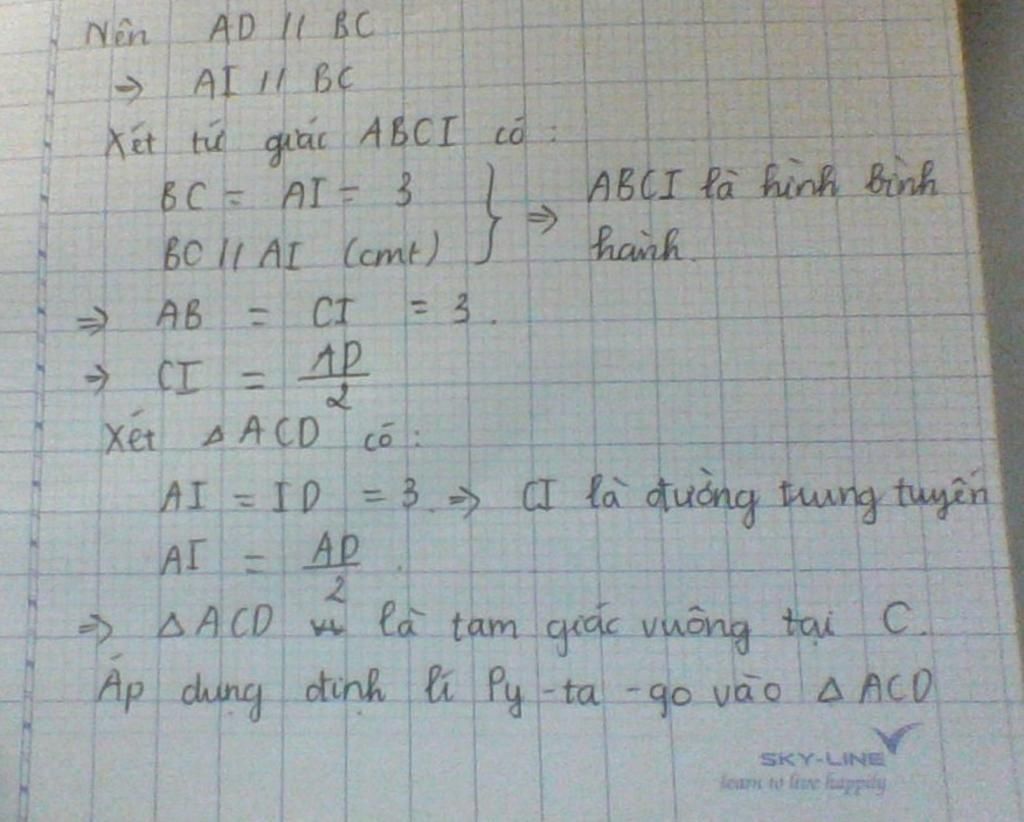 Nên AD // BC
⇒ AI // BC
Xét tứ giác ABCI có:
BC = AI = 3
BC // AI (cmt)
} ⇒ ABCI là hình bình
hành.
⇒ AB = CI = 3.
⇒ CI = AD/2
Xét ΔACD có:
AI = ID = 3. ⇒ CI là đường trung tuyến
AI = AD/2.
⇒ ΔACD là tam giác vuông tại C.
Áp dụng định lí Py-ta-go vào ΔACD
SKY-LINE
learn to live happily